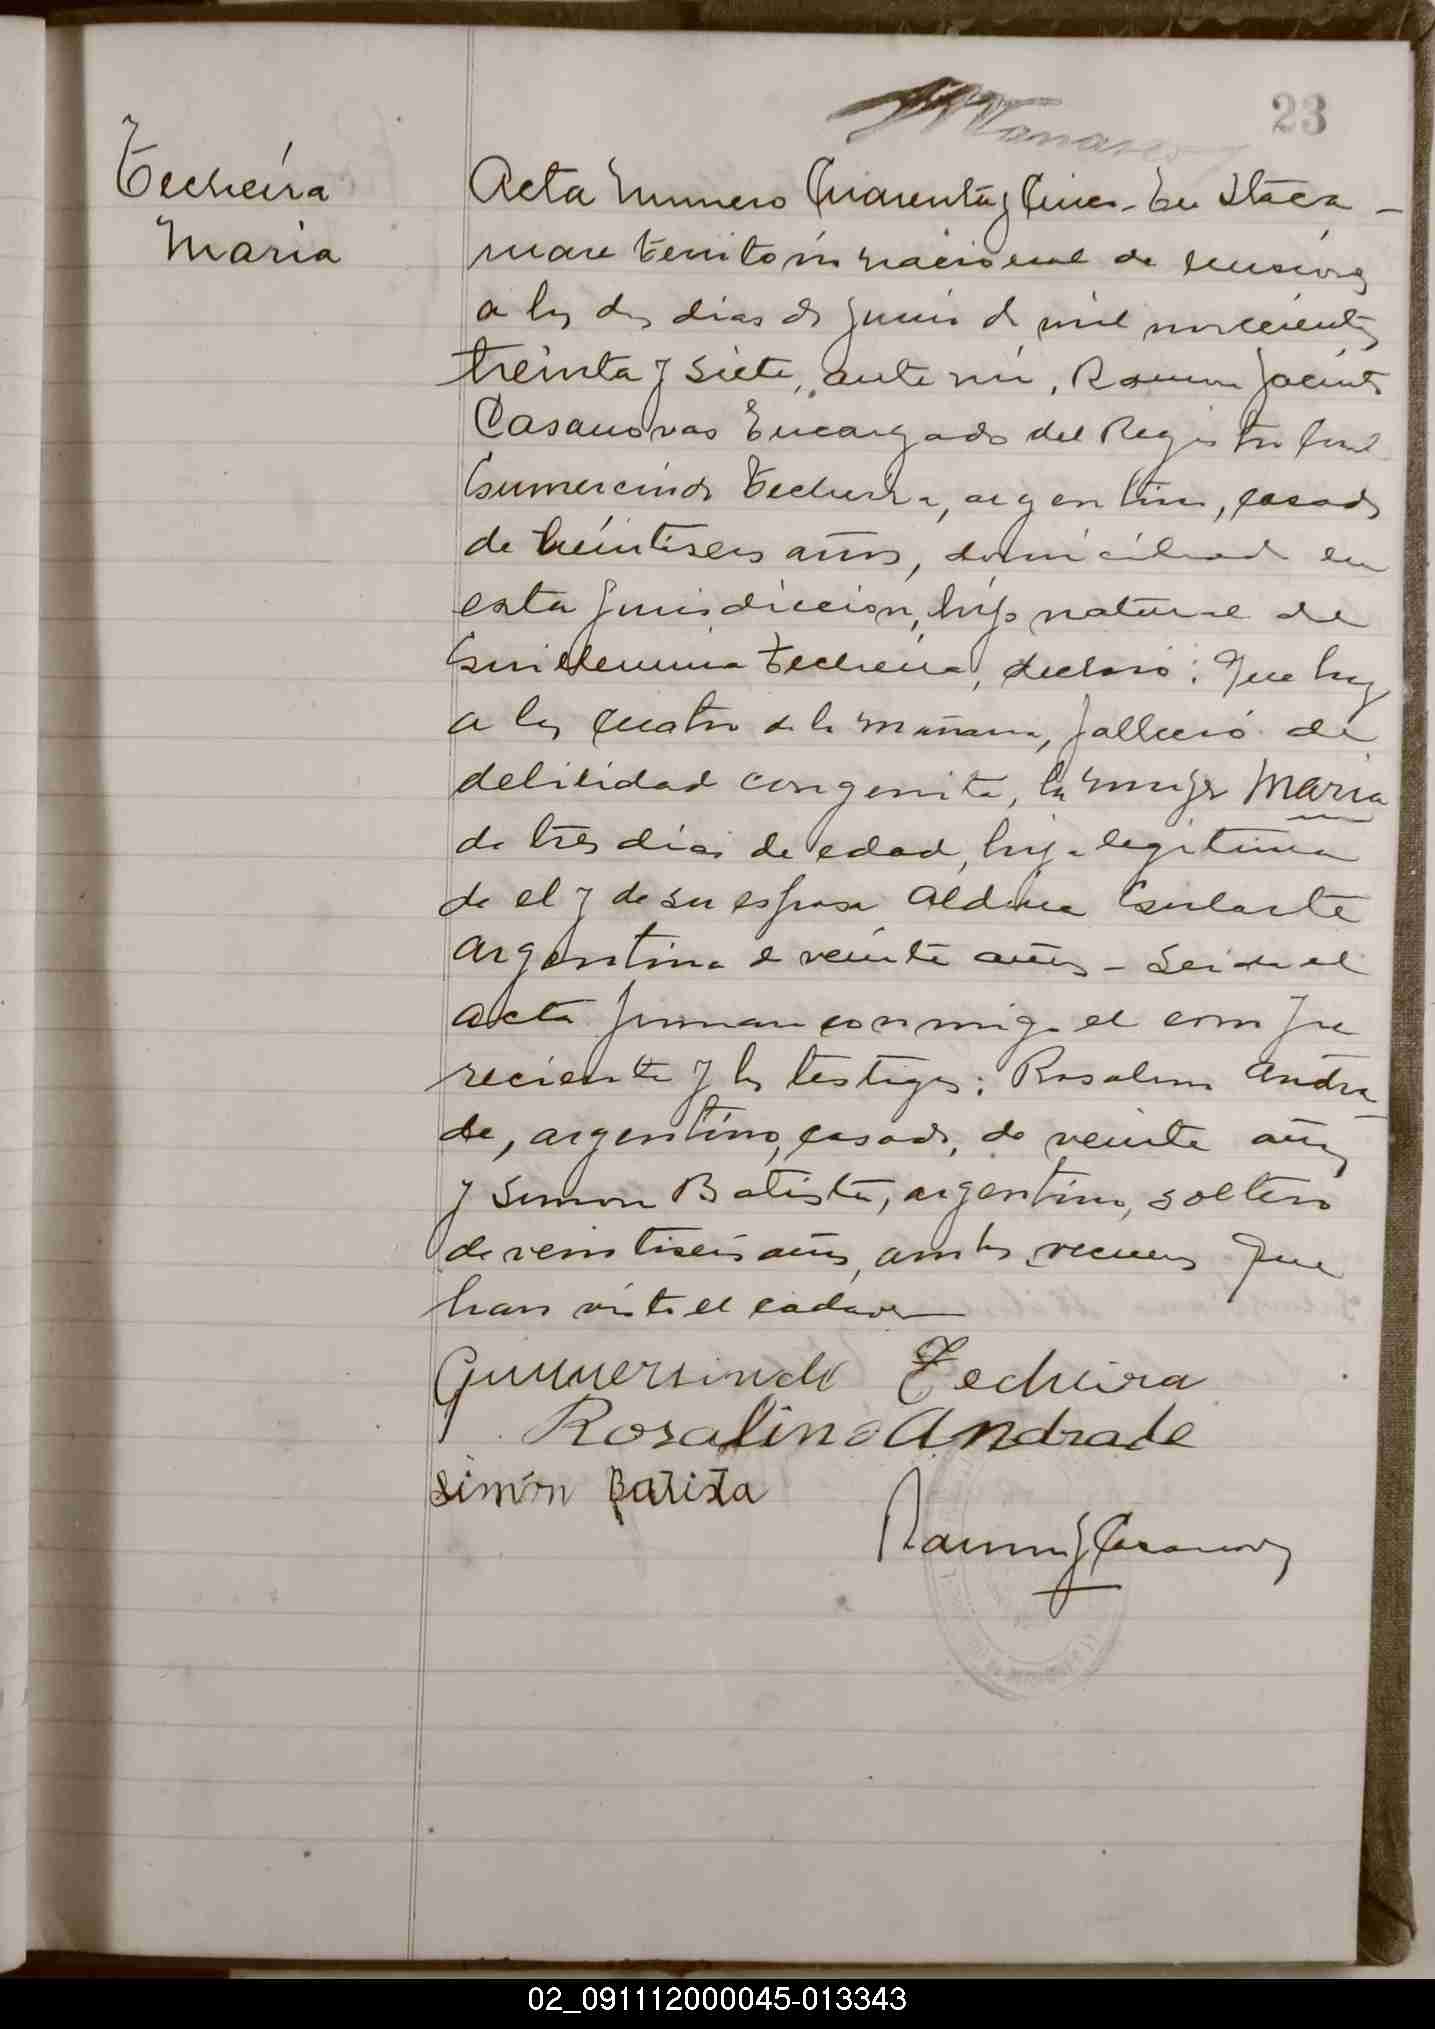 23
Techeira
Maria
Acta Numero Cuarenta y Cinco - En Itaca -
ruare territorio nacional de misiones
a los dos dias de junio de mil novecientos
treinta y siete, ante mi, Ramon Jacinto
Casanovas Encargado del Registro Civil
Gumercindo Techeira, argentino, casado
de treintiseis años, domiciliado en
esta jurisdiccion, hijo natural de
Guillermina Techeira, declaró: Que hoy
a las cuatro de la mañana, falleció de
debilidad congenita, la mujer Maria
de tres dias de edad, hija legitima
de el y de su esposa Aldina
argentina de veinte años - Leida el
acta firman conmigo el compa
reciente y los testigos: Rosalino Andra
de, argentino, casado, de veinte años
y Simon Batista, argentino, soltero
de veintiseis años, ambos vecinos que
han visto el cadaver
Gumersindo Techeira
Rosalino Andrade
Simón Batista
Ramon J Casanovas
02_091112000045-013343